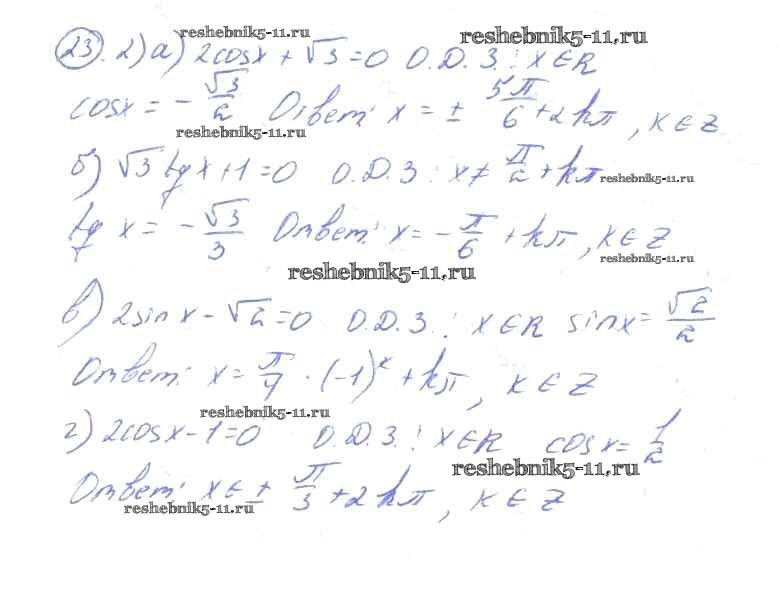 reshebnik5-11.ru reshebnik5-11.ru
23. 2) а) 2cosx + √3 = 0 О.Д.З.: x ∈ R
cosx = -√3/2 Ответ: x = ± 5π/6 + 2kπ, k ∈ Z
reshebnik5-11.ru
б) √3 tg x + 1 = 0 О.Д.З.: x ≠ π/2 + kπ reshebnik5-11.ru
tg x = -√3/3 Ответ: x = -π/6 + kπ, k ∈ Z
reshebnik5-11.ru reshebnik5-11.ru
в) 2sin x - √2 = 0 О.Д.З.: x ∈ R sinx = √2/2
Ответ: x = π/4 · (-1)ᵏ + kπ, k ∈ Z
reshebnik5-11.ru
г) 2cosx - 1 = 0 О.Д.З.: x ∈ R cosx = 1/2
reshebnik5-11.ru
Ответ: x ∈ ± π/3 + 2kπ, k ∈ Z
reshebnik5-11.ru